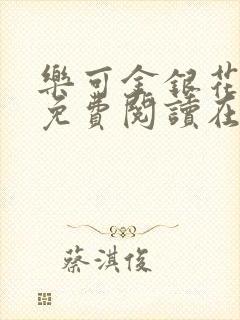 樂可金銀花
免費閱讀在
蔡淇俊